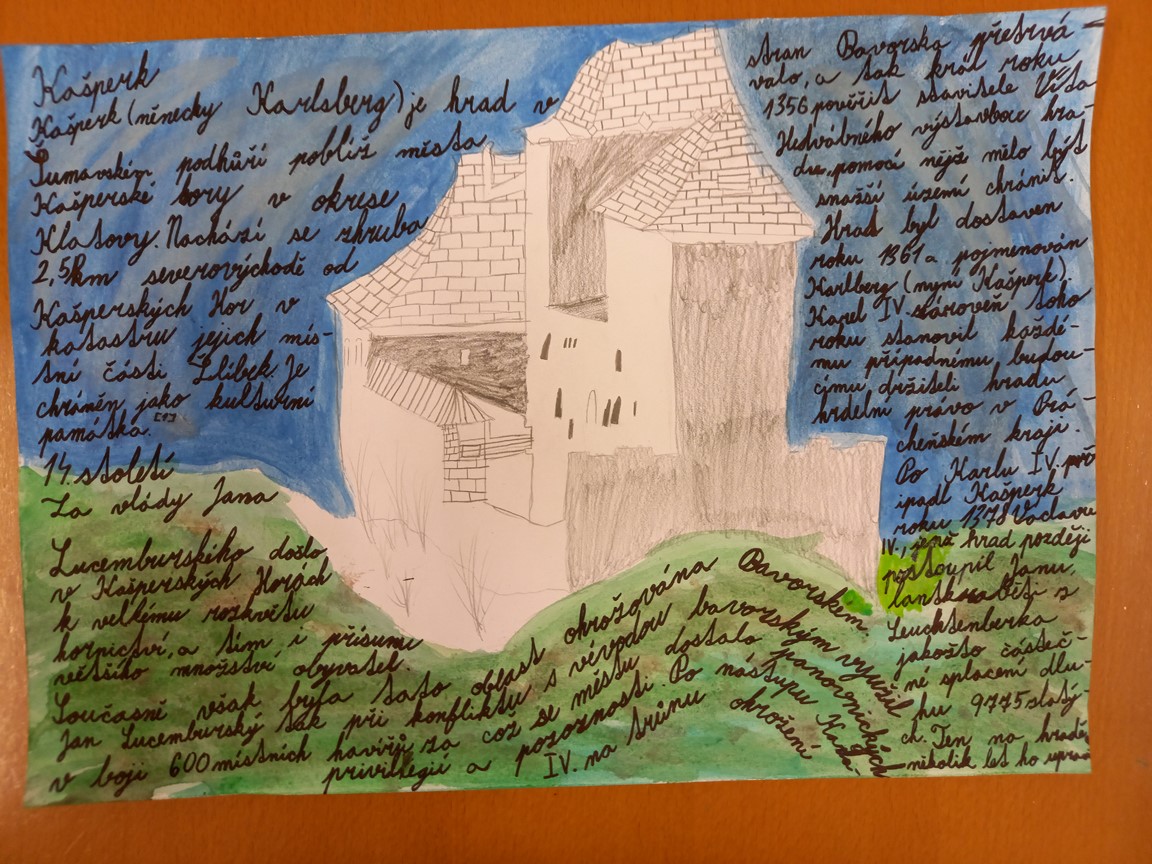 Kašperk
Kašperk (německy Karlsberg) je hrad v
Šumavském podhůří poblíž města
Kašperské hory v okrese
Klatovy. Nachází se zhruba
2,5km severovýchodě od
Kašperských Hor v
katastru jejich mís-
tní části Žlíbek. Je
chráněn jako kulturní
památka. [1]
14. století
Za vlády Jana
Lucemburského došlo
v Kašperských Horách
k velkému rozkvětu
hornictví, a tím i přísunu
většího množství obyvatel.
Současně však byla tato oblast ohrožována Bavorskem.
Jan Lucemburský tak při konfliktu s vévodou bavorským využil
v boji 600 místních havířů, za což se městu dostalo panovnických
privilegií a pozornosti. Po nástupu Karla
IV. na trůnu ohrožení
stran Bavorska přetrvá-
valo, a tak král roku
1356 pověřil stavitele Víta
Hedvábného výstavbou hra-
du, pomocí nějž mělo být
snažší území chránit.
Hrad byl dostaven
roku 1361 a pojmenován
Karlberg (nyní Kašperk).
Karel IV. zároveň toho
roku stanovil každé-
mu případnému budou-
címu držiteli hradu
hrdelní právo v Prá-
cheňském kraji.
Po Karlu IV. při
ipadl Kašperk
roku 1378 Václavu
IV., jenž hrad později
postoupil Janu,
lantkraběti s
Leuchtenberka
jakožto částeč-
né splacení dlu-
hu 9775 zlatý-
ch. Ten na hradě
několik let ho uprav